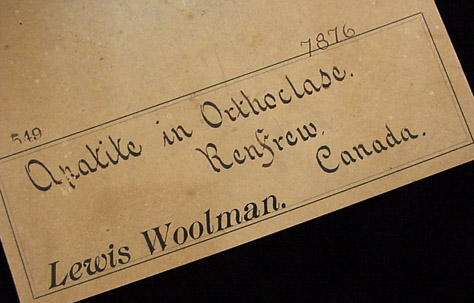 7876
549
Apatite in Orthoclase.
Renfrew.
Canada.
Lewis Woolman.